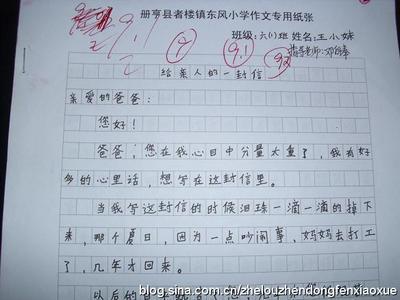 册亨县者楼镇东风小学作文专用纸张
班级:六(1)班 姓名:王小妹
指导老师:邓
9.1
9.1
92
给亲人的一封信
亲爱的爸爸:
您好!
爸爸,您在我心目中分量太重了,我有好
多的心里话,想写在这封信里。
当我写这封信的时候泪珠一滴一滴的掉下
来,那个夏日,因为一点吵闹事,妈妈去打工
了,几年才回来。
以后的
blog.sina.com.cn/zhelouzhendongfenxiaoxue